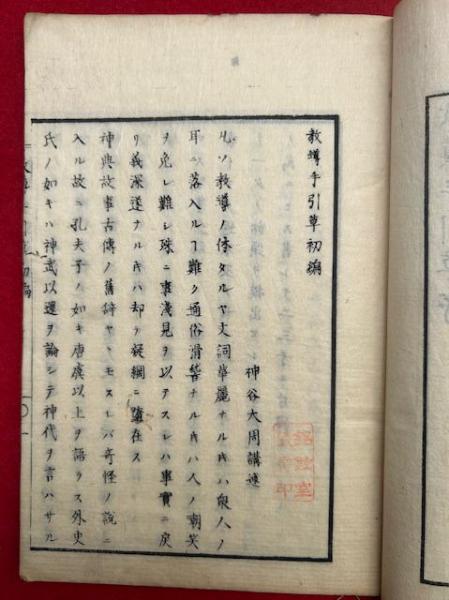 教導手引草初編
神谷大周講述
凡ソ教導ノ体タルヤ文詞華麗ナルトキハ衆人ノ
耳ニ落入ルヿ難ク通俗滑稽ナルトキハ人ノ嘲笑
ヲ免レ難シ殊ニ事浅見ヲ以テスレハ事實ニ戻
リ義深遠ナルトキハ却テ疑網ニ墮在ス
神典故事古傳ノ舊辞ヤヽモスレバ奇怪ノ説ニ
入ル故ニ孔夫子ノ如キ唐虞以上ヲ語ラス外史
氏ノ如キハ神武以還ヲ論シテ神代ヲ言ハサル